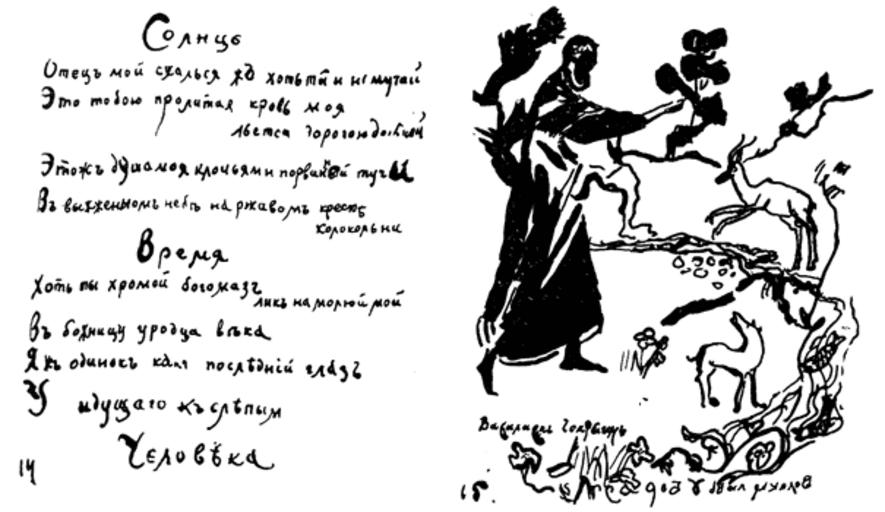 Солнце
Отецъ мой сжалься хоть ты и не мучай
Это тобою пролитая кровь моя
льется дорогою дольней
Этожъ душа моя клочьями порваной тучи
Въ выжженномъ небѣ на ржавомъ крестѣ
колокольни
Время
Хоть ты хромой богомазъ
ликъ намалюй мой
Въ божницу уродца вѣка
Я къ одинокъ какъ послѣдній глазъ
У идущаго къ слѣпым
Человѣка
14
15.